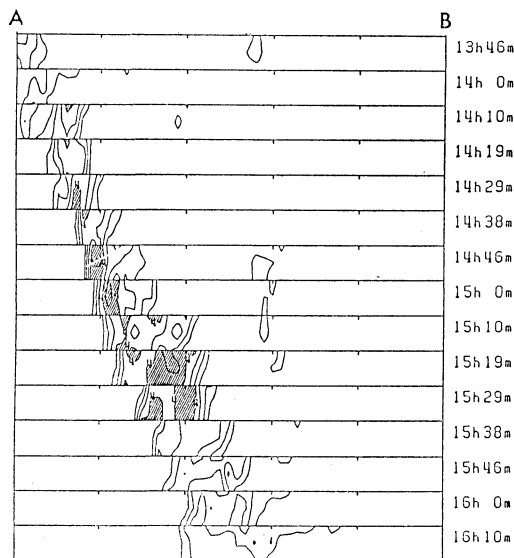 A B
13h46m
14h 0m
14h10m
14h19m
14h29m
14h38m
14h46m
15h 0m
15h10m
15h19m
15h29m
15h38m
15h46m
16h 0m
16h10m